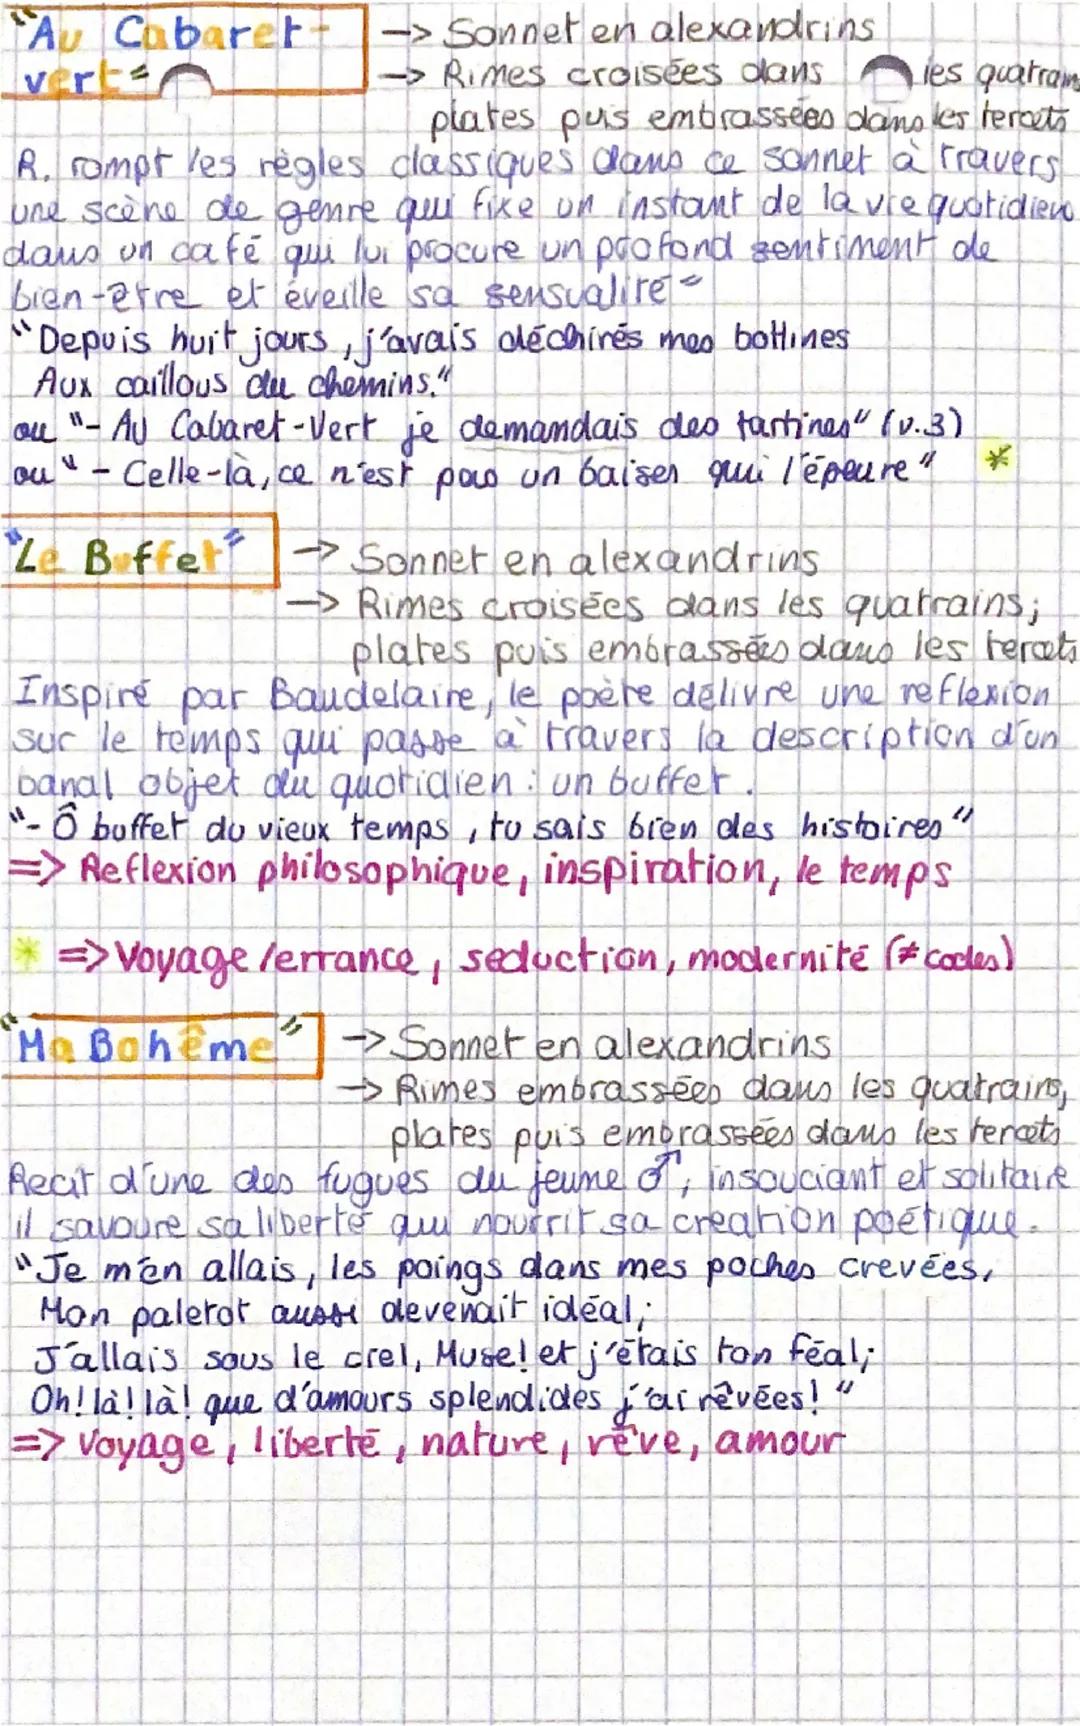 "Au Cabaret-
vert"
-> Sonnet en alexandrins
-> Rimes croisées dans les quatrains
plates puis embrassées dans les tercets
R. rompt les règles classiques dans ce sonnet à travers
une scène de genre qui fixe un instant de la vie quotidienne
dans un café qui lui procure un profond sentiment de
bien-être et éveille sa sensualité
"Depuis huit jours, j'avais déchirés mes bottines
Aux caillous du chemins."
ou "- Au Cabaret-Vert je demandais des tartines" (v.3)
ou " - Celle-là, ce n'est pas un baiser qui l'épeure" *
"Le Buffet"
-> Sonnet en alexandrins
-> Rimes croisées dans les quatrains;
plates puis embrassées dans les tercets
Inspiré par Baudelaire, le poète délivre une reflexion
sur le temps qui passe à travers la description d'un
banal objet du quotidien : un buffet.
"- Ô buffet du vieux temps, tu sais bien des histoires"
=> Reflexion philosophique, inspiration, le temps
* => Voyage/errance, seduction, modernité (≠ codes)
"Ma Bohême"
-> Sonnet en alexandrins
-> Rimes embrassées dans les quatrains,
plates puis embrassées dans les tercets
Recit d'une des fugues du jeune ♂, insouciant et solitaire
il savoure sa liberté qui nourrit sa creation poétique.
"Je m'en allais, les poings dans mes poches crevées,
Mon paletot aussi devenait idéal;
J'allais sous le ciel, Muse! et j'étais ton féal;
Oh! là! là! que d'amours splendides j'ai rêvées!"
=> Voyage, liberté, nature, rêve, amour